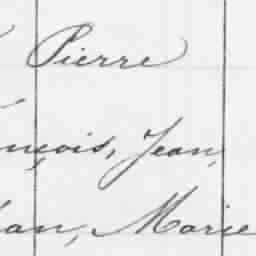 Pierre
nçois, Jean,
an, Marie